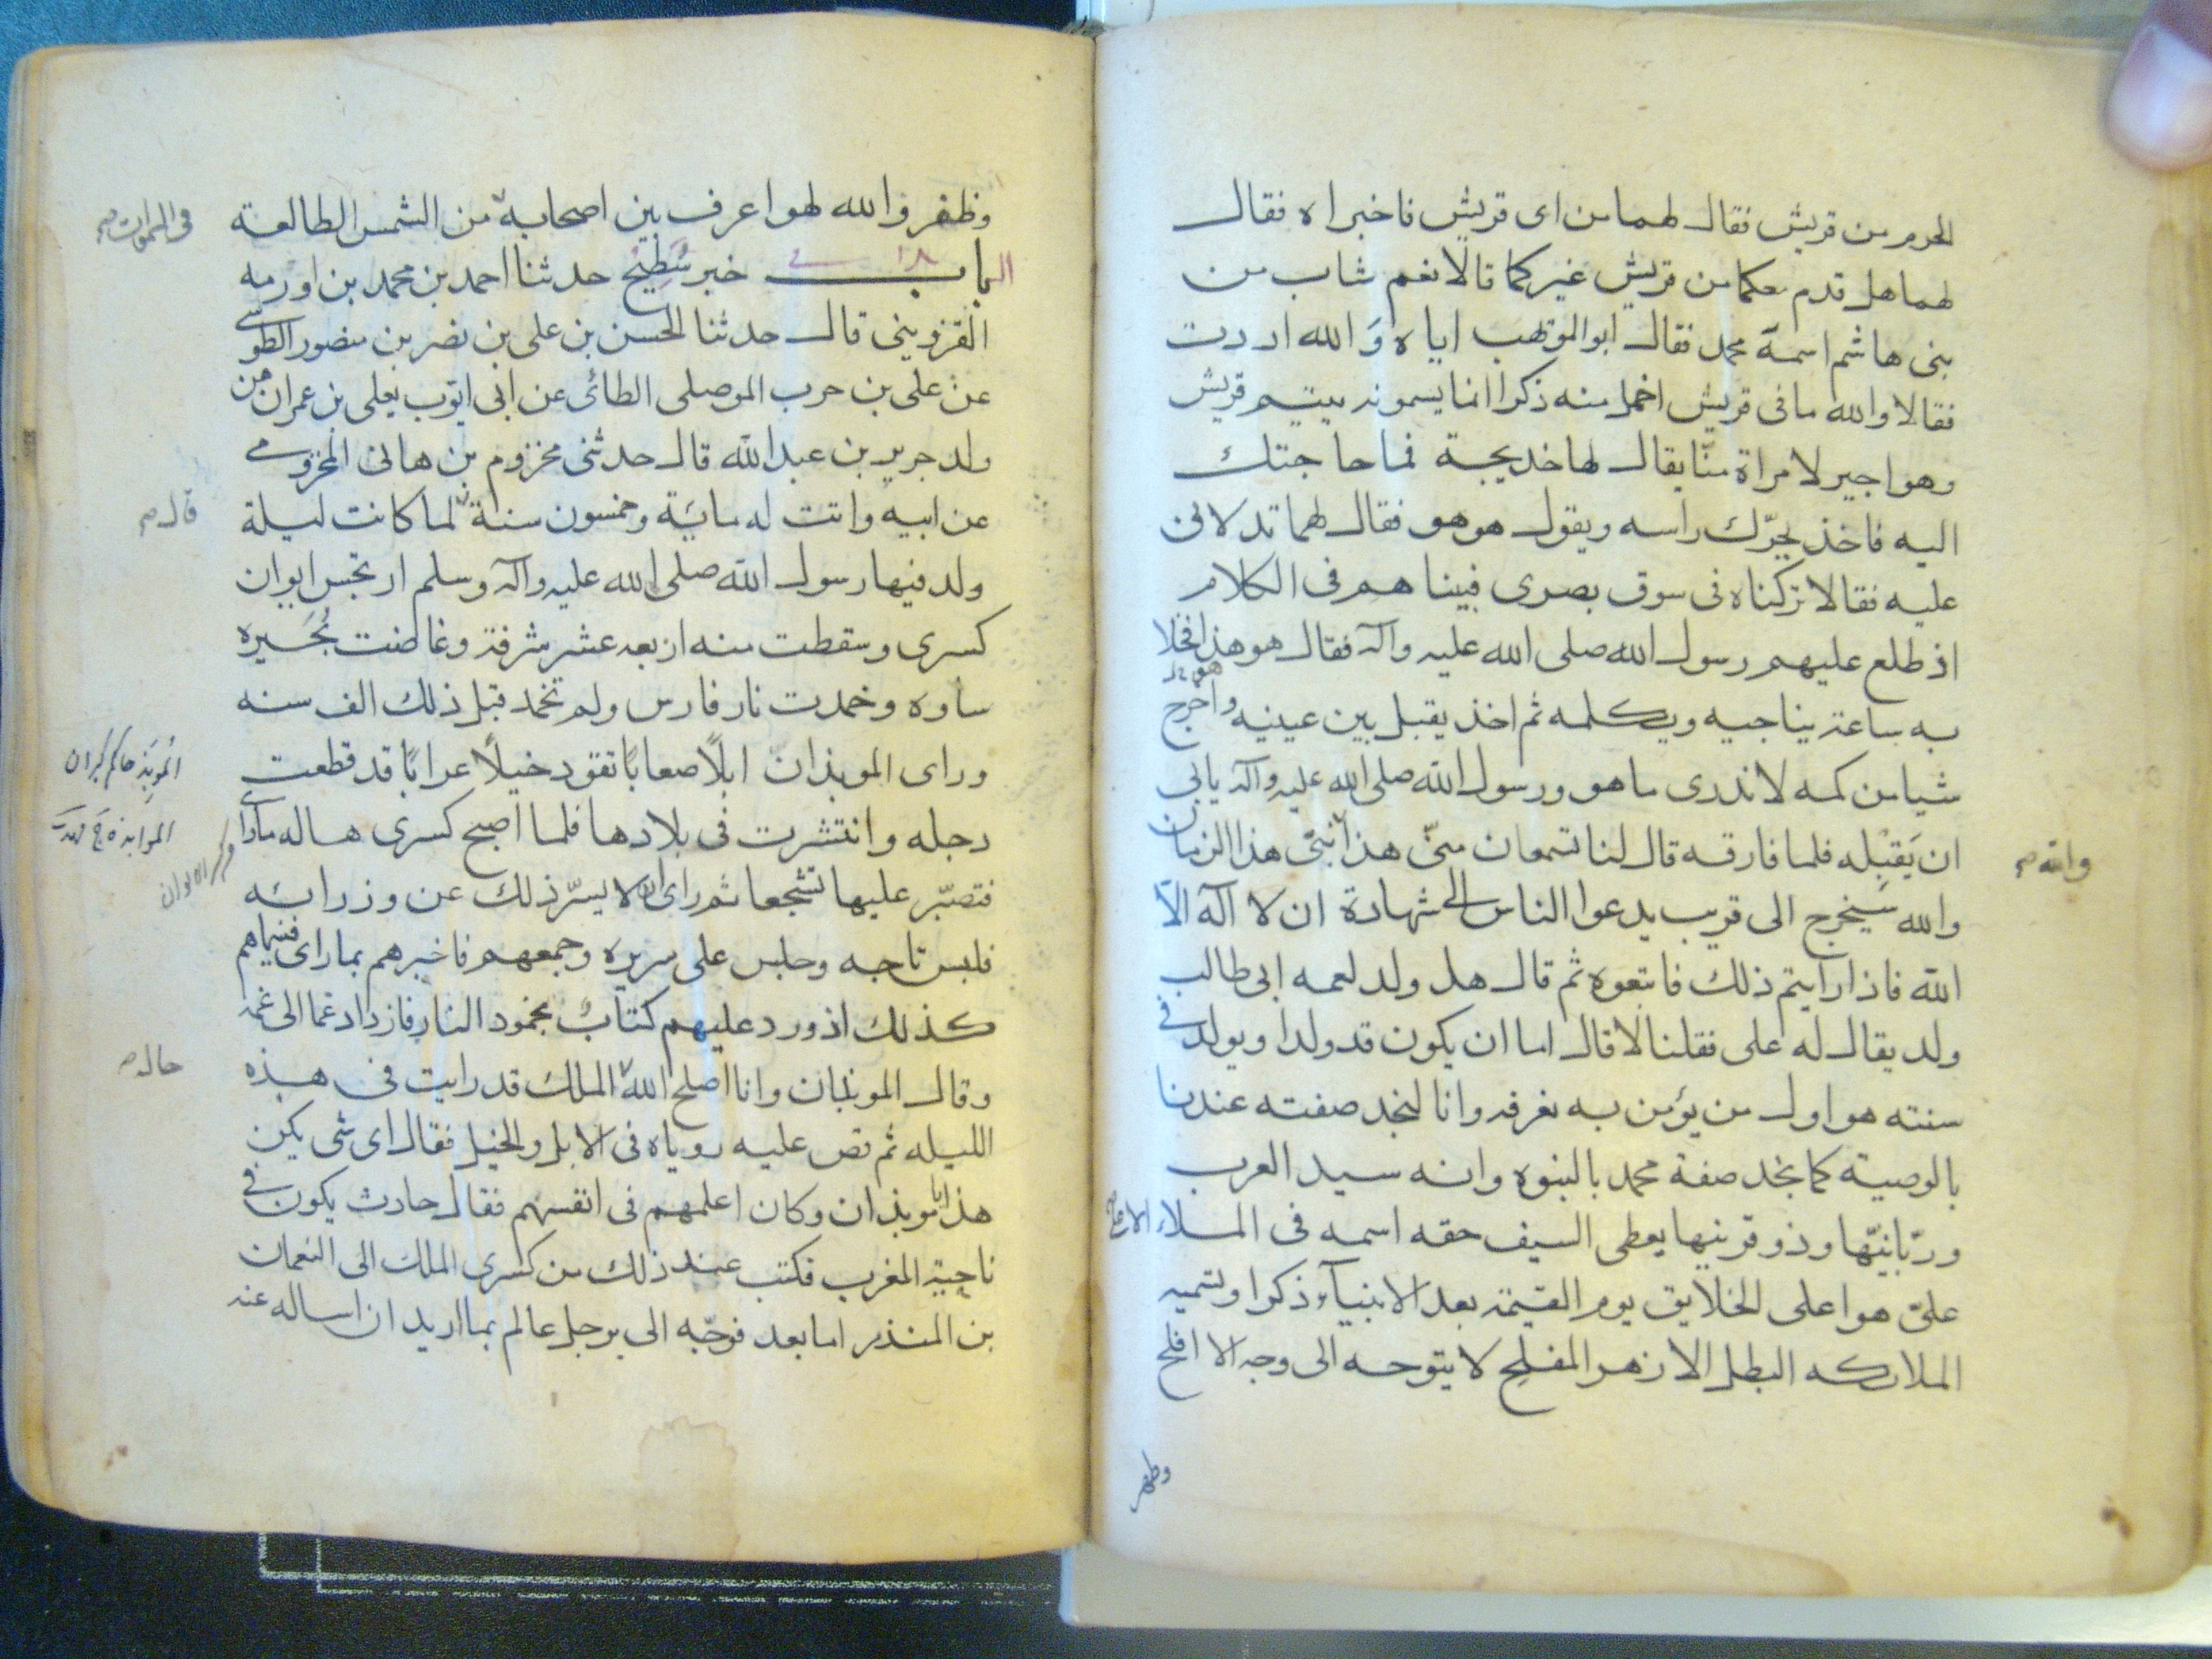 الحرم من قريش فقال لهما من اى قريش فاخبراه فقال
لهما هل قدم معكما من قريش غيركما قالا نعم شاب من
بنى هاشم اسمه محمد فقال ابو الموهب اياه وَالله اردت
فقالا والله ما فى قريش اخمل منه ذكرا انما يسمونه يتيم قريش
وهو اجير لامراة منّا يقال لها خديجة فما حاجتك
اليه فاخذ يحرّك راسه ويقول هو هو فقال لهما تدلانى
عليه فقالا تركناه فى سوق بصرى فبينا هم فى الكلام
اذ طلع عليهم رسول الله صلى الله عليه وآله فقال هو هذا فخلا
هو
به ساعة يناجيه ويكلمه ثم اخذ يقبل بين عينيه واخرج
شيا من كمه لا ندرى ما هو ورسول الله صلى الله عليه وآله يابى
ان يَقبله فلما فارقه قال لنا تسمعان منّى هذا نبىّ هذا الزمان
وانه م
والله سَيخرج الى قريب يدعوا الناس الى شهادة ان لا اله الّا
الله فاذا رايتم ذلك فاتبعوه ثم قال هل ولد لعمه ابى طالب
ولد يقال له على فقلنا لا قال اما ان يكون قد ولد او يولد فى
سنته هو اول من يؤمن به نعرفه وانا لنجد صفته عندنا
بالوصية كما نجد صفة محمد بالنبوه وانه سيد العرب
وربّانيّها وذو قرنيها يعطى السيف حقه اسمه فى الملاء الاعلى
علىّ هو اعلى الخلايق يوم القيمة بعد الانبيآء ذكرا وتسميه
الملائكه البطل الازهر المفلح لا يتوجه الى وجه الا افلح
وظفر
وظفر والله لهو اعرف بين اصحابه من الشمس الطالعة
فى السموات م
الباب خبر سَطيح حدثنا احمد بن محمد بن اورمه
القزوينى قال حدثنا الحسن بن على بن نصر بن منصور الطوسى
عن على بن حرب الموصلى الطائى عن ابى ايوب يعلى بن عمران من
ولد جرير بن عبد الله قال حدثنى مخزوم بن هانى المخزومى
عن ابيه واتت له مائة وخمسون سنة لما كانت ليلة
قال م
ولد فيها رسول الله صلى الله عليه وآله وسلم ارتجس ايوان
كسرى وسقطت منه اربعه عشر شرفة وغاضت بُحَيره
ساوه وخمدت نار فارس ولم تخمد قبل ذلك الف سنه
وراى الموبذان ابلًا صعابًا تقود خيلًا عرابًا قد قطعت
المُوبَذ حاكم كبران
دجله وانتشرت فى بلادها فلما اصبح كسرى هاله ما راى
الموابذة ج
فتصبّر عليها تشجعا ثم راى ان لا يسرّ ذلك عن وزرائه
فلبس تاجه وجلس على سريره وجمعهم فاخبرهم بما راى فبينما هم
كذلك اذ ورد عليهم كتابٌ بخمود النار فازداد غما الى غمه
وقال الموبذان وانا اصلح الله الملك قد رايت فى هذه
حال م
الليله ثم قص عليه روياه فى الابل والخيل فقال اى شى يكون
هذا يا موبذان وكان اعلمهم فى انفسهم فقال حادث يكون فى
ناحية المغرب فكتب عند ذلك من كسرى الملك الى النعمان
بن المنذر اما بعد فوجّه الى برجل عالم بما اريد ان اساله عنه